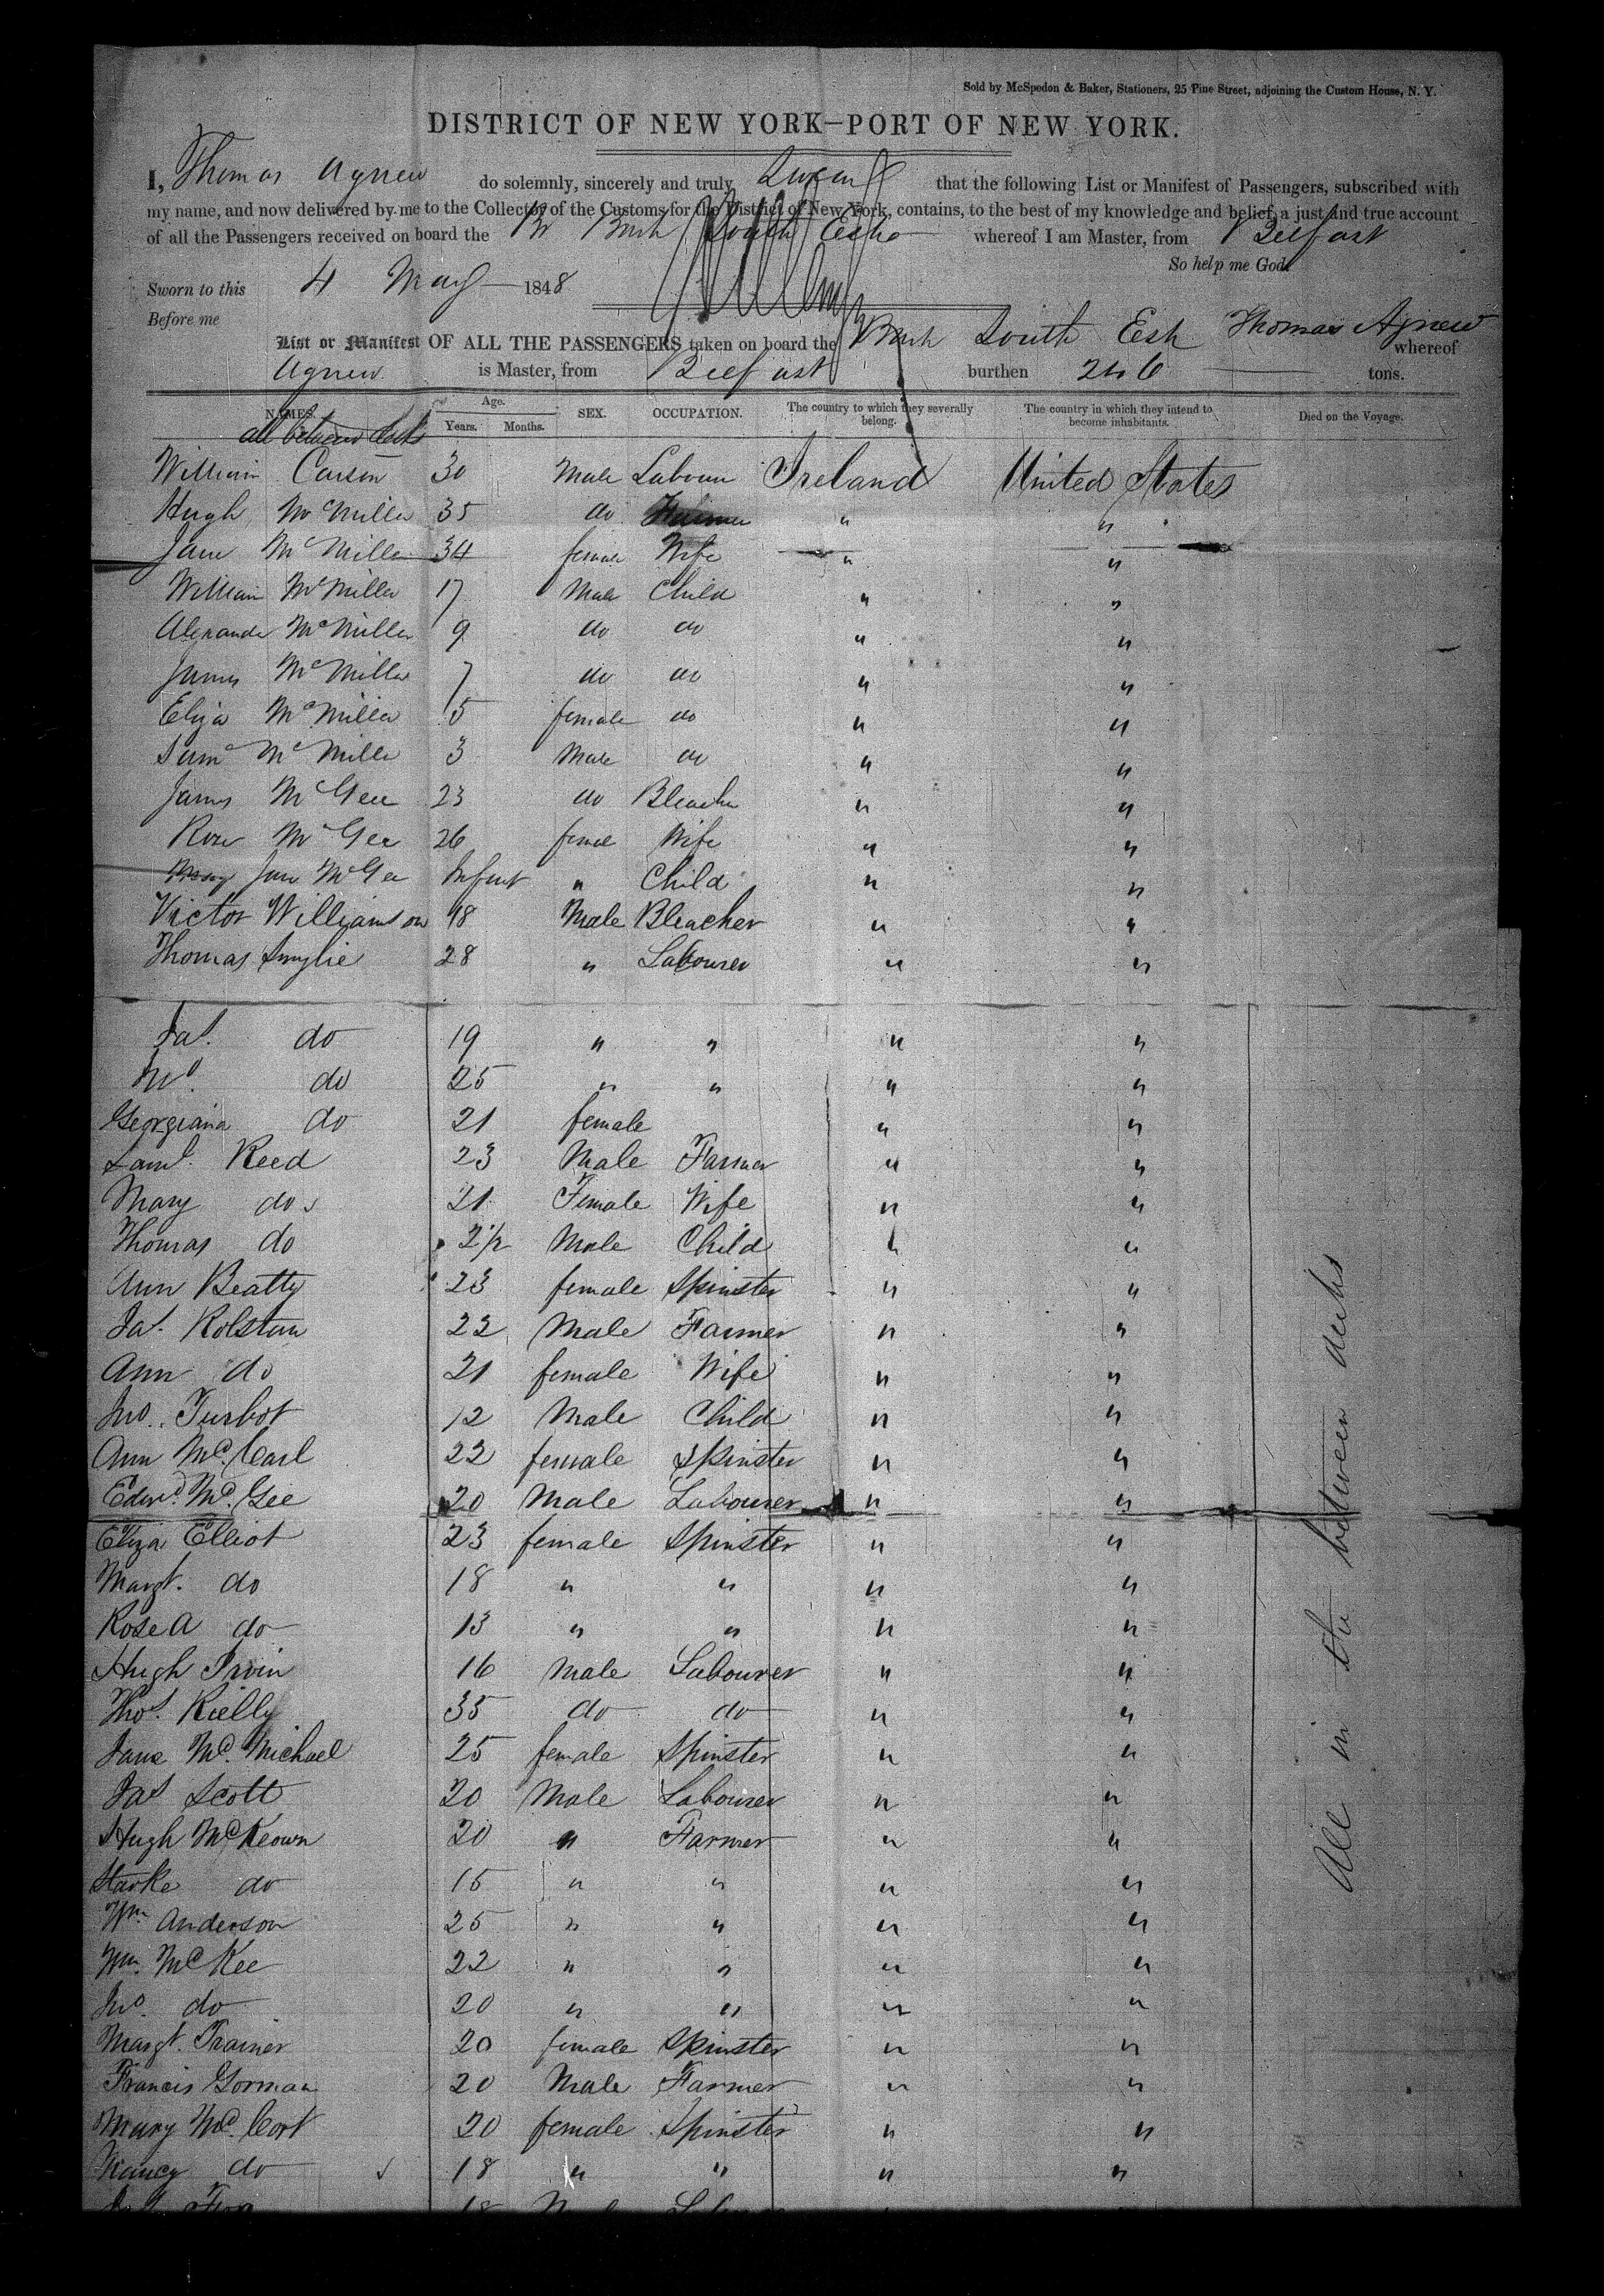 Sold by McSpedon & Baker, Stationers, 25 Pine Street, adjoining the Custom House, N. Y.
DISTRICT OF NEW YORK—PORT OF NEW YORK.
I, Thomas Agnew do solemnly, sincerely and truly Swear that the following List or Manifest of Passengers, subscribed with
my name, and now delivered by me to the Collector of the Customs for the District of New York, contains, to the best of my knowledge and belief, a just and true account
of all the Passengers received on board the Br Bark South Eske whereof I am Master, from Belfast
So help me God.
Sworn to this 4 May 1848
Before me
List or Manifest OF ALL THE PASSENGERS taken on board the Bark South Esk Thomas Agnew whereof
Agnew is Master, from Belfast burthen 246 tons.
NAMES. Age. Years. Months. SEX. OCCUPATION. The country to which they severally belong. The country in which they intend to become inhabitants. Died on the Voyage.
all between decks
William Carson 30 Male Labour Ireland United States
Hugh McMillen 35 do Farmer " "
Jane McMillen 34 female Wife " "
William McMillen 17 Male Child " "
Alexander McMillen 9 do do " "
James McMillen 7 do do " "
Eliza McMillen 5 female do " "
Saml McMillen 3 Male do " "
James McGee 23 do Bleacher " "
Rose McGee 26 female Wife " "
Mary Jane McGee Infant " Child " "
Victor Williamson 18 Male Bleacher " "
Thomas Smylie 28 " Labourer " "
Jas. do 19 " " " "
do 25 " " " "
Georgiana do 21 female " "
Saml. Reed 23 Male Farmer " "
Mary do 21 Female Wife " "
Thomas do 2½ Male Child " "
Ann Beatty 23 female Spinster " "
Jas. Rolston 22 Male Farmer " "
Ann do 21 female Wife " "
Jno. Turbot 12 Male Child " "
Ann Mc.Carl 22 female Spinster " "
Edwd. Mc.Gee 20 Male Labourer " "
Eliza Elliot 23 female Spinster " "
Margt. do 18 " " " "
Rose A do 13 " " " "
Hugh Irvin 16 Male Labourer " "
Thos. Rielly 35 do do " "
Jane Mc.Michael 25 female Spinster " "
Jas Scott 20 Male Labourer " "
Hugh McKeown 20 " Farmer " "
Starke do 15 " " " "
Wm. Anderson 25 " " " "
Wm. McKee 22 " " " "
Jno. do 20 " " " "
Margt. Trainer 20 female Spinster " "
Francis Gorman 20 Male Farmer " "
Mary Mc.Cort 20 female Spinster " "
Nancy do 18 " " " "
All in the between decks